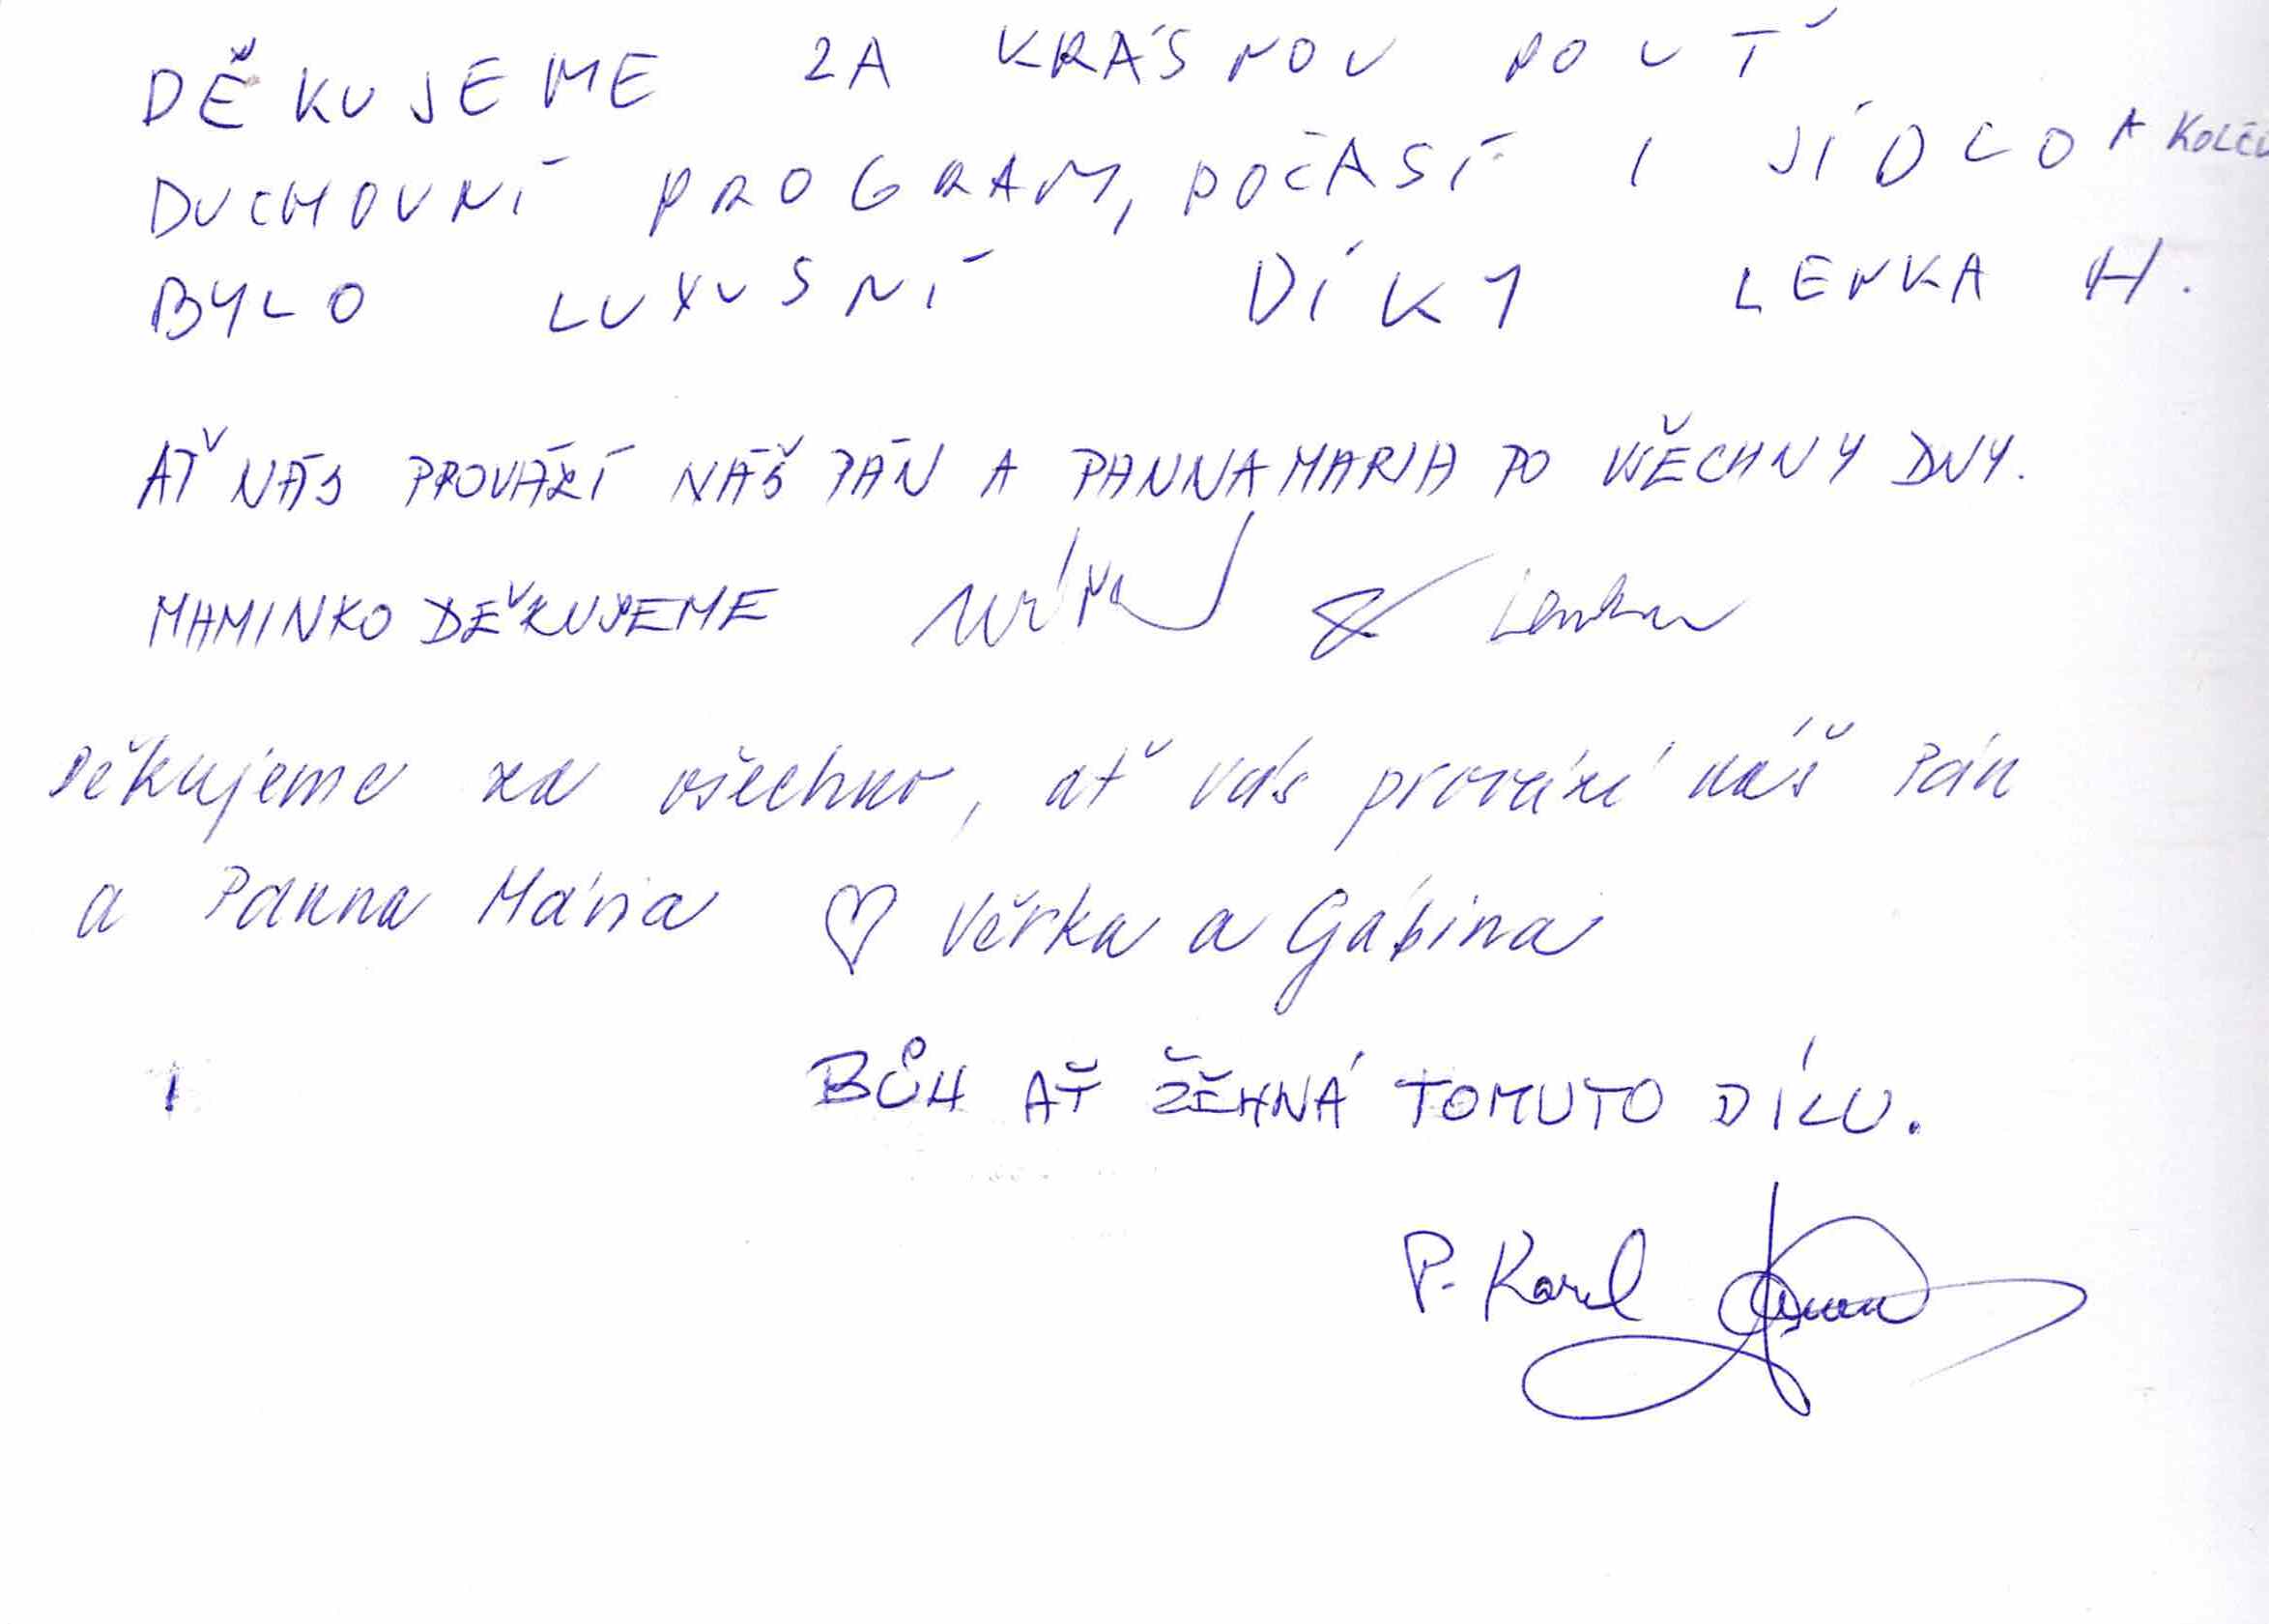 DĚKUJEME ZA KRÁSNOU POUŤ
DUCHOVNÍ PROGRAM, POČASÍ I JÍDLO A
BYLO LUXUSNÍ DÍKY LENKA H.
AŤ NÁS PROVÁZÍ NÁŠ PÁN A PANNA MARIA PO VŠECHNY DNY.
MAMINKO DĚKUJEME & Lenka
Děkujeme za všechno, ať vás provází náš Pán
a Panna Mária ♡ Věrka a Gábina
BŮH AŤ ŽEHNÁ TOMUTO DÍLU.
P. Karel